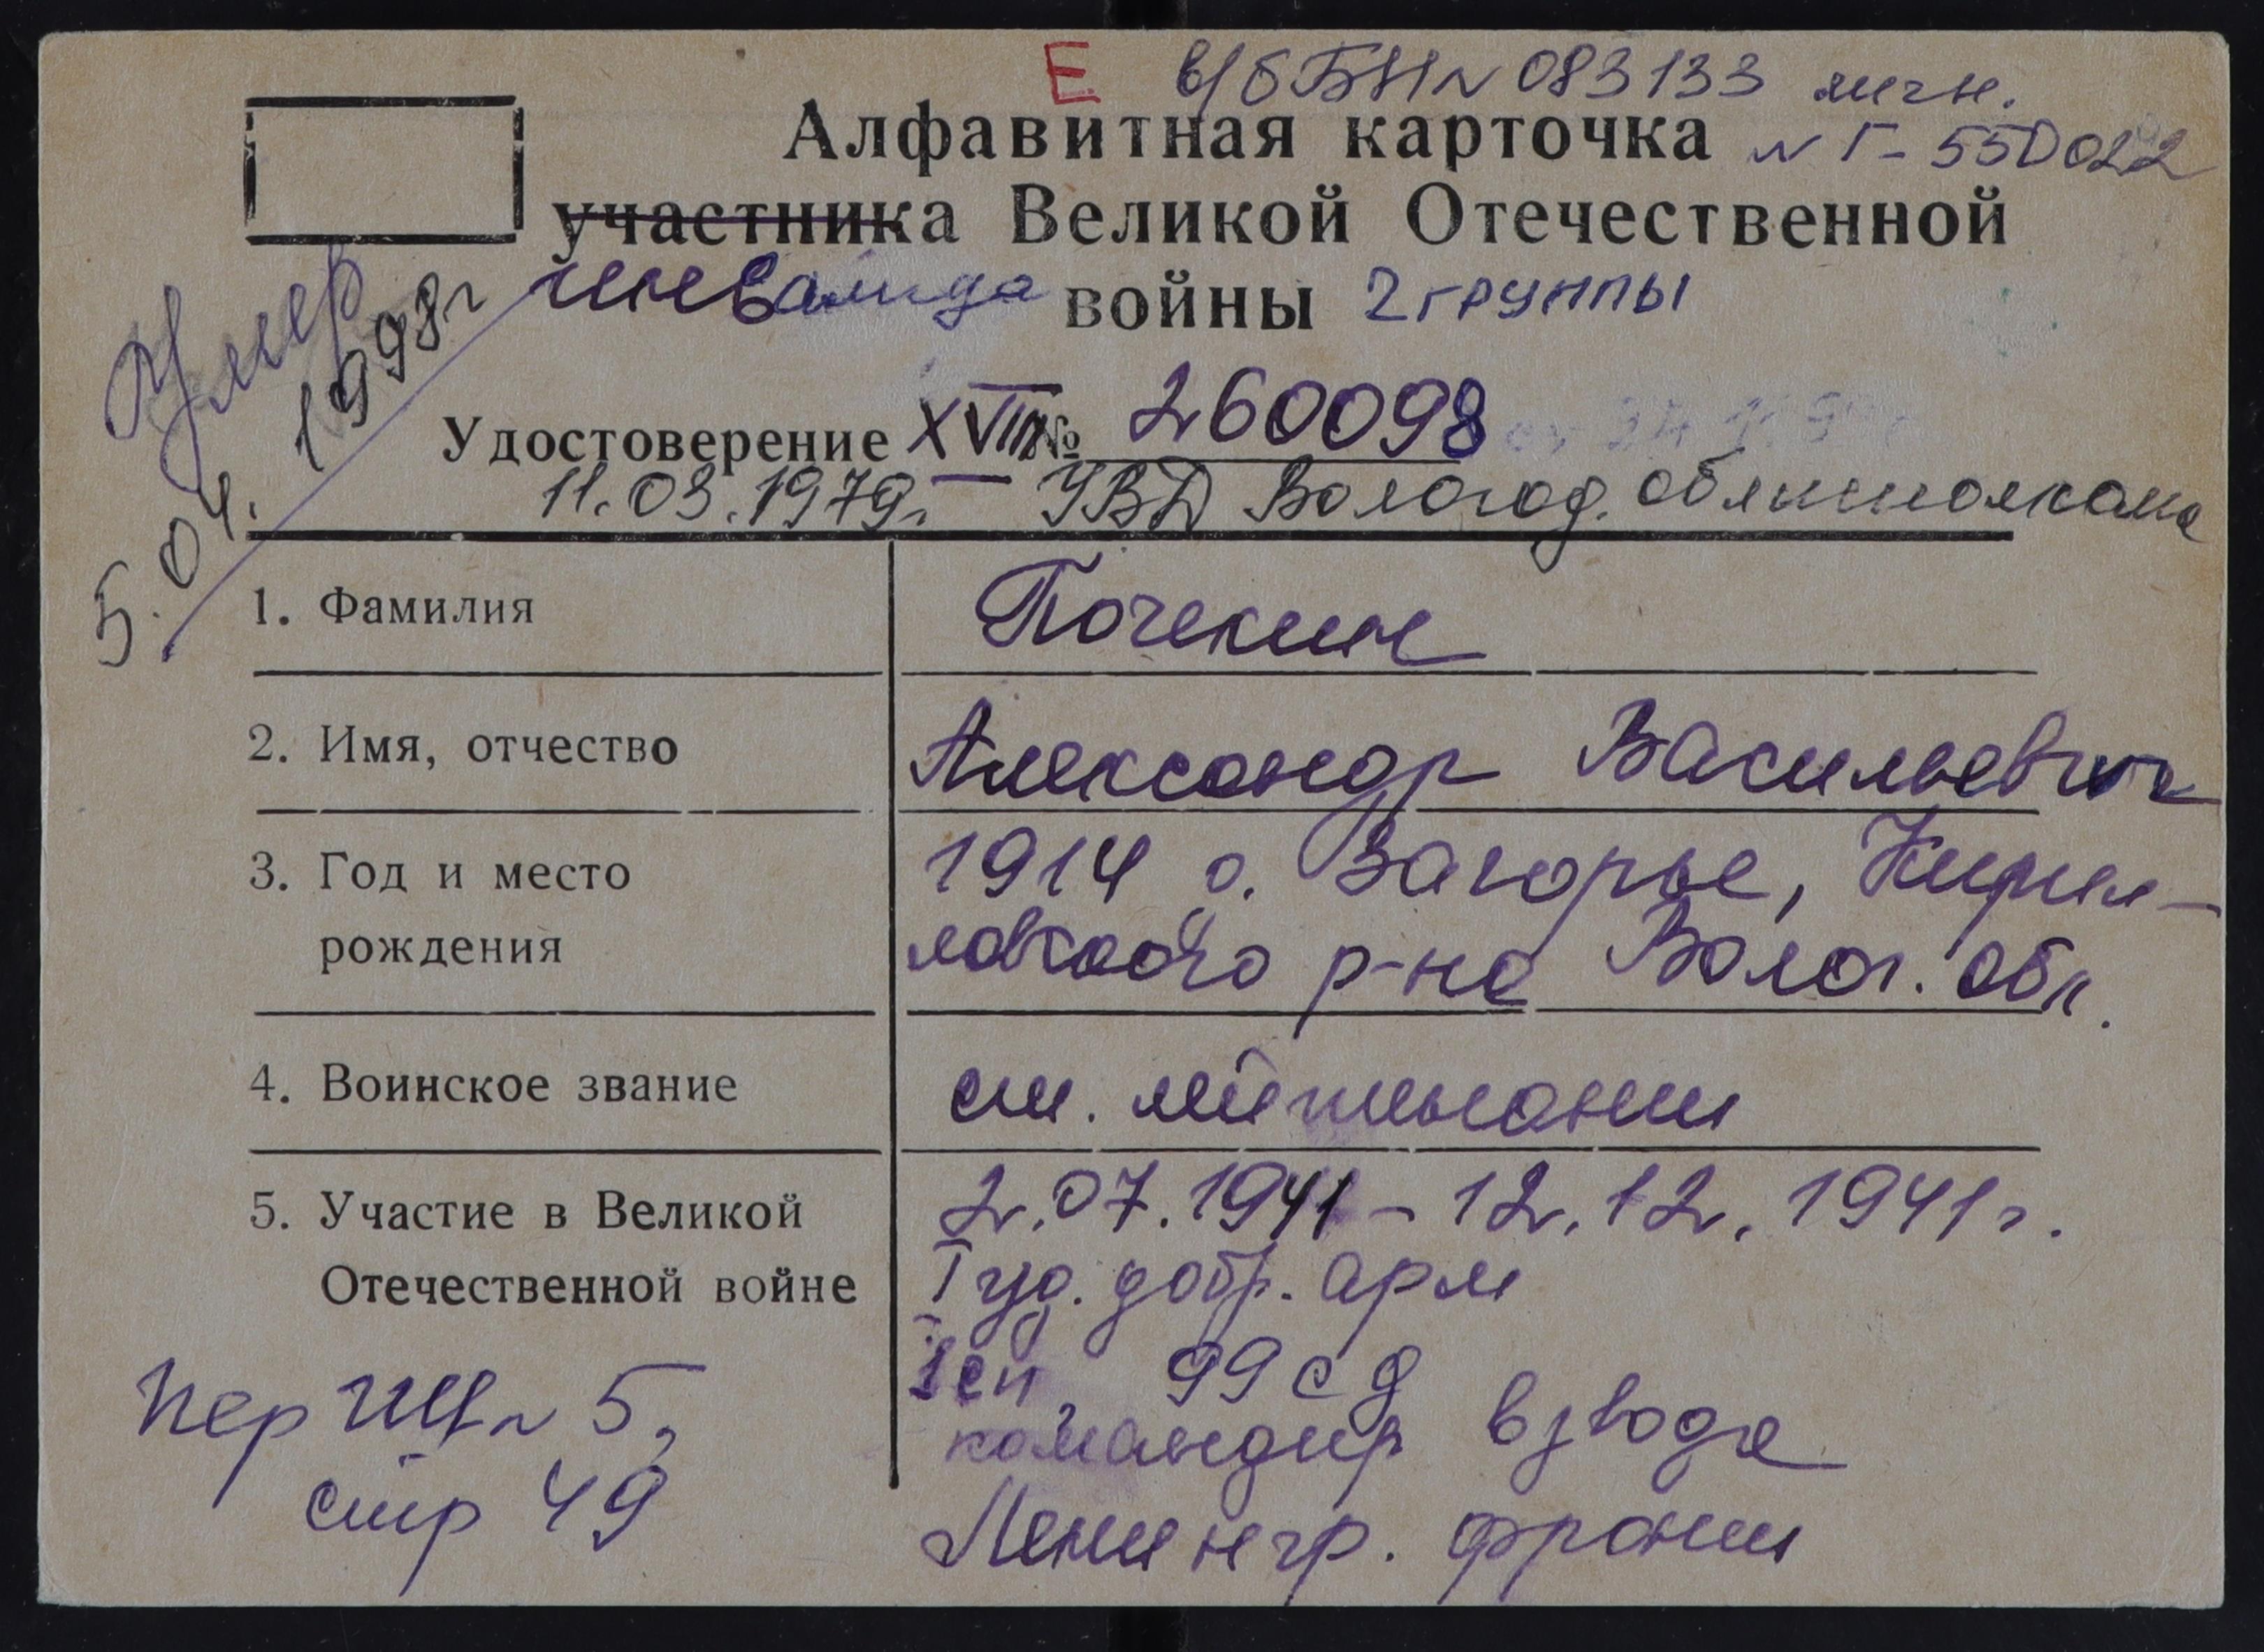 Е в/б БН № 083133 личн.
Алфавитная карточка № Г-550022
участника Великой Отечественной
инвалида войны 2 группы
Умер
5.04.1998г
Удостоверение XVIII № 260098
11.03.1979г. УВД Вологод. облисполкома
1. Фамилия Почекин
2. Имя, отчество Александр Васильевич
3. Год и место 1914 д. Загорье, Кирил-
рождения ловского р-на Волог. обл.
4. Воинское звание ст. лейтенант
5. Участие в Великой 2.07.1941 - 12.12.1941г.
Отечественной войне I уд. добр. арм
1 сп, 99 сд
Пер № 5, командир взвода
стр 49 Ленингр. фронт